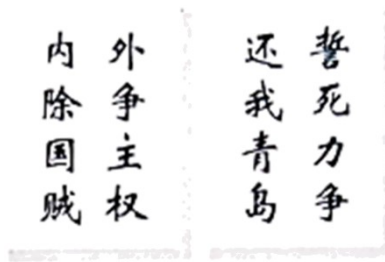 誓死力争
还我青岛
外争主权
内除国贼